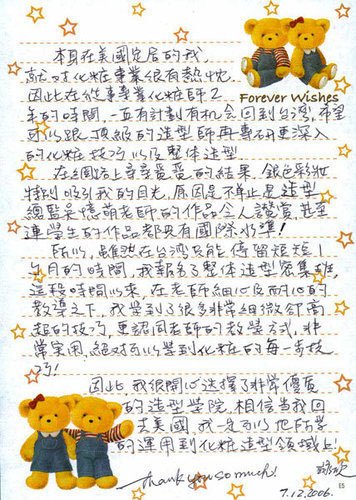 本身在美國定居的我,
就对化粧專業很有熱忱,
因此在從事專業化妝師2
Forever Wishes
年的時間,一直有計劃有机会回到台灣,希望
可以跟頂級的造型師再專研更深入
的化粧技巧以及整体造型.
在網站上尋尋覓覓的結果,銀色彩妝
特別吸引我的目光.原因是不止是造型
總監吳憶萌老師的作品令人讚賞,甚至
連學生的作品都具有國際水準!
所以,雖然在台灣只能停留短短1
年月的時間,我報名了整体造型密集班,
這段時間以來,在老師細心及耐心的
教導之下,我學到了很多非常細微卻高
超的技巧,更認同老師的教學方式,非
常實用,絕对可以學到化粧的每一步技
巧!
因此 我很開心選擇了非常優質
的造型學院.相信當我回
去美國 我一定可以把所學
的運用到化粧造型領域上!
Thank you so much!
7.12.2006.